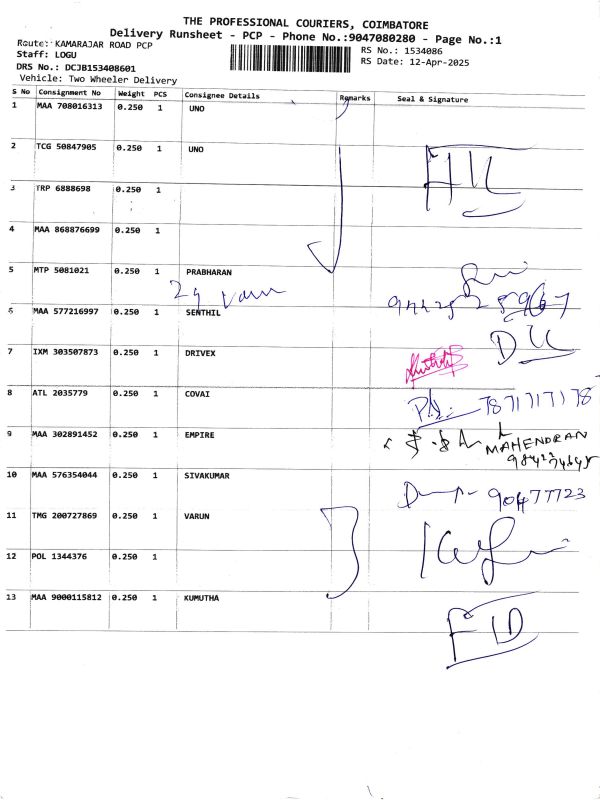 THE PROFESSIONAL COURIERS, COIMBATORE
Delivery Runsheet - PCP - Phone No.:9047080280 - Page No.:1
Route: KAMARAJAR ROAD PCP
RS No.: 1534086
Staff: LOGU
RS Date: 12-Apr-2025
DRS No.: DCJB153408601
Vehicle: Two Wheeler Delivery
S No Consignment No Weight PCS Consignee Details Remarks Seal & Signature
1 MAA 708016313 0.250 1 UNO
2 TCG 50847905 0.250 1 UNO
3 TRP 6888698 0.250 1
4 MAA 868876699 0.250 1
5 MTP 5081021 0.250 1 PRABHARAN
6 MAA 577216997 0.250 1 SENTHIL
7 IXM 303507873 0.250 1 DRIVEX
8 ATL 2035779 0.250 1 COVAI 7871717178
9 MAA 302891452 0.250 1 EMPIRE MAHENDRAN
10 MAA 576354044 0.250 1 SIVAKUMAR
11 TMG 200727869 0.250 1 VARUN
12 POL 1344376 0.250 1
13 MAA 9000115812 0.250 1 KUMUTHA